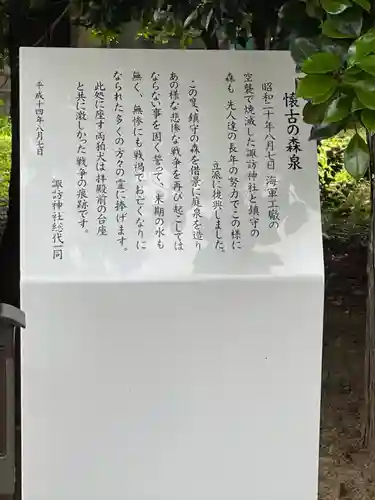 懐古の森泉
昭和二十年八月七日 海軍工廠の
空襲で焼滅した諏訪神社と鎮守の
森も 先人達の長年の努力でこの様に
立派に復興しました。
この度、鎮守の森を借景に庭泉を造り
あの様な悲惨な戦争を再び起こしては
ならない事を固く誓って、末期の水も
無く、無惨にも戦禍でお亡くなりに
なられた多くの方々の霊に捧げます。
此処に座す両狛犬は拝殿前の台座
と共に激しかった戦争の痕跡です。
諏訪神社総代一同
平成十四年八月七日